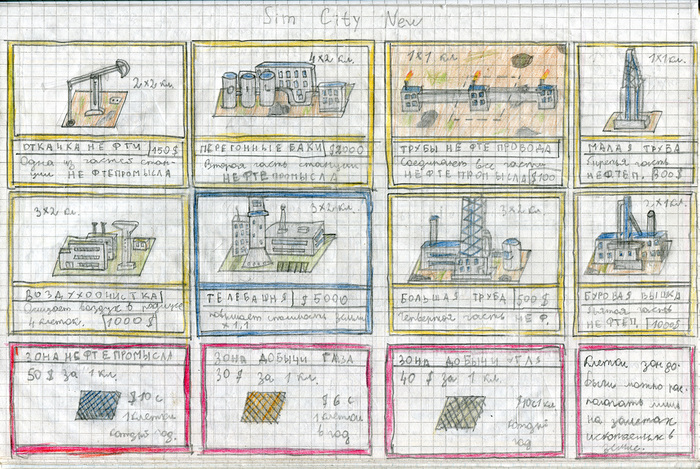 Sim City New
2x2 кл.
ОТКАЧКА НЕФТИ 150$
Одна из частей стан-
ции НЕФТЕПРОМЫСЛА
4x2 кл.
ПЕРЕГОННЫЕ БАКИ $2000
Вторая часть станции
НЕФТЕПРОМЫСЛА
1x1 кл.
ТРУБЫ НЕФТЕПРОВОДА
Соединяет все части
НЕФТЕПРОМЫСЛА $100
1x1 кл.
МАЛАЯ ТРУБА
Третья часть
НЕФТЕП. 300$
3x2 кл.
ВОЗДУХООЧИСТКА
Очищает воздух в радиусе
4 клеток. 1000$
3x2 кл.
ТЕЛЕБАШНЯ $5000
повышает стоимость земли
x 1,1
3x2 кл.
БОЛЬШАЯ ТРУБА 500$
Четвертая часть НЕФ.
2x1 кл.
БУРОВАЯ ВЫШКА
Пятая часть
НЕФТЕП. 1000$
ЗОНА НЕФТЕПРОМЫСЛА
50$ за 1 кл.
$10 с
1 клетки
каждый год.
ЗОНА ДОБЫЧИ ГАЗА
30$ за 1 кл.
$6 с
1 клетки
в год
ЗОНА ДОБЫЧИ УГЛЯ
40$ за 1 кл.
$10 с 1 кл
каждый
год.
Клетки зон до-
бычи можно рас-
полагать лишь
на залежах
ископаемых в
земле.